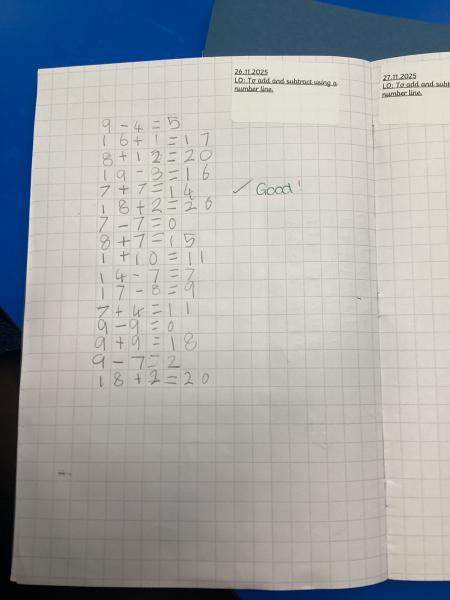 26.11.2025
LO: To add and subtract using a
number line.
9 - 4 = 5
16 + 1 = 17
8 + 12 = 20
19 - 3 = 16
7 + 7 = 14
18 + 2 = 26
7 - 7 = 0
8 + 7 = 15
1 + 10 = 11
14 - 7 = 7
17 - 8 = 9
7 + 4 = 11
9 - 9 = 0
9 + 9 = 18
9 - 7 = 2
18 + 2 = 20
✓ Good!
27.11.2025
LO: To add and subt
number line.